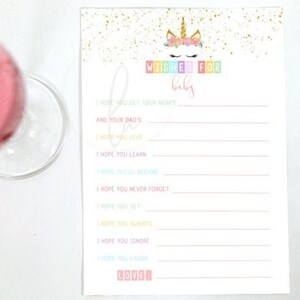 WISHES FOR
baby
I HOPE YOU GET YOUR MOM'S
AND YOUR DAD'S
I HOPE YOU LOVE
I HOPE YOU LEARN
I HOPE YOU'LL BECOME
I HOPE YOU NEVER FORGET
I HOPE YOU GET
I HOPE YOU ALWAYS
I HOPE YOU IGNORE
I HOPE YOU LAUGH
LOVE,